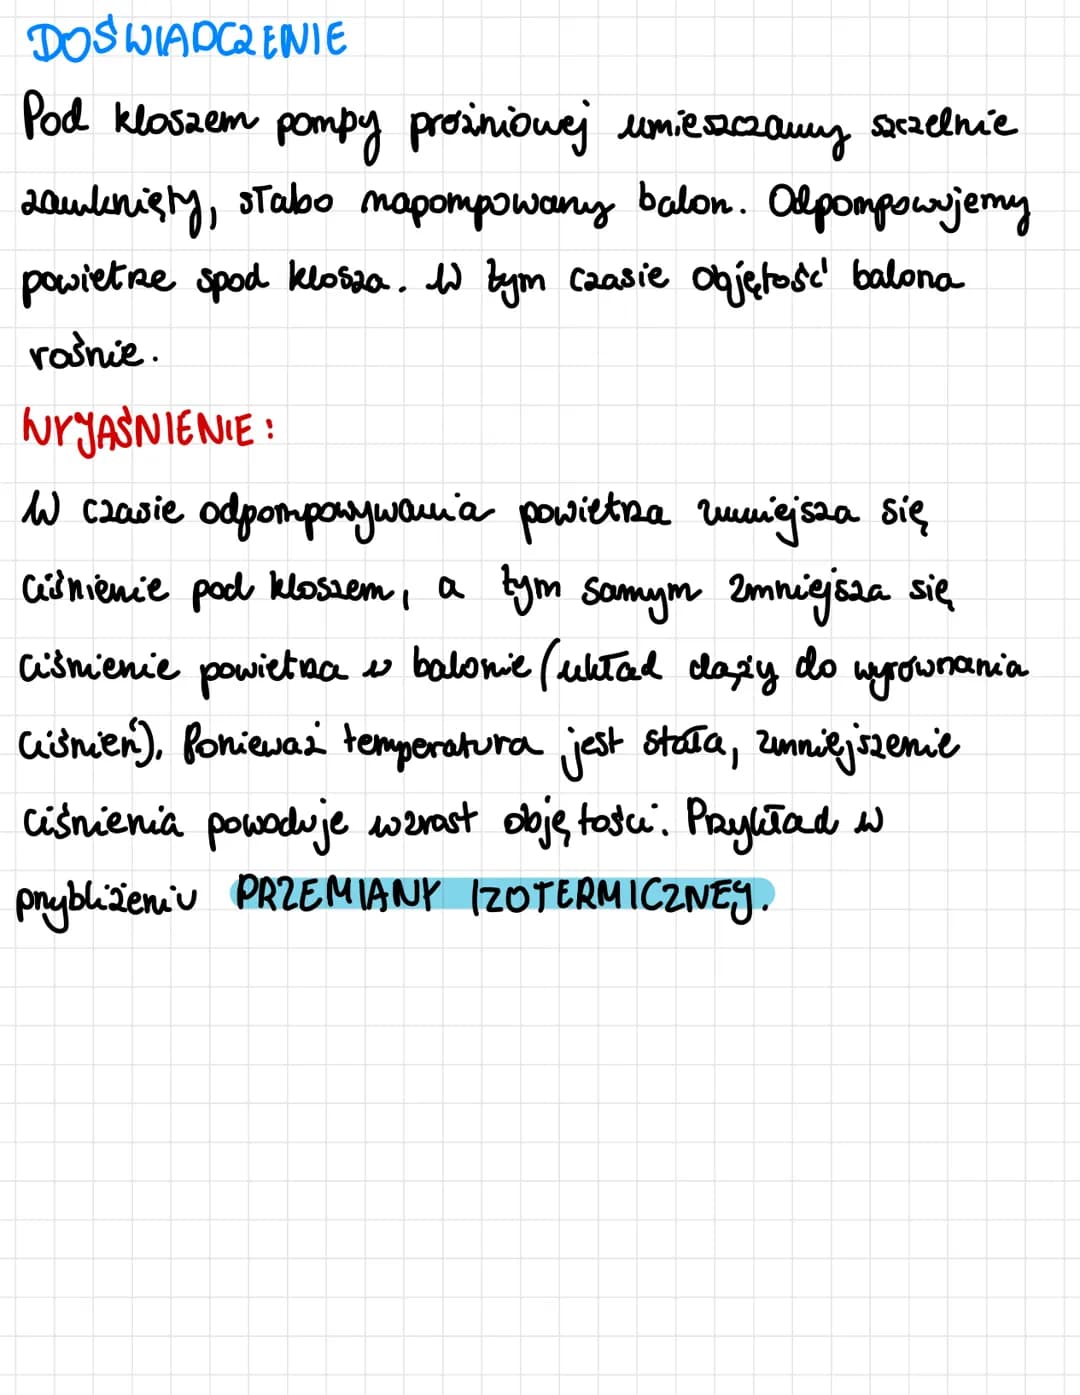 DOŚWIADCZENIE
Pod kloszem pompy próżniowej umieszczamy szczelnie
zamknięty, słabo napompowany balon. Odpompowujemy
powietrze spod klosza. W tym czasie objętość balona
rośnie.
WYJAŚNIENIE:
W czasie odpompowywania powietrza zmniejsza się
ciśnienie pod kloszem, a tym samym zmniejsza się
ciśnienie powietrza w balonie (układ dąży do wyrównania
ciśnień). Ponieważ temperatura jest stała, zmniejszenie
ciśnienia powoduje wzrost objętości. Przykład w
przybliżeniu PRZEMIANY IZOTERMICZNEJ.